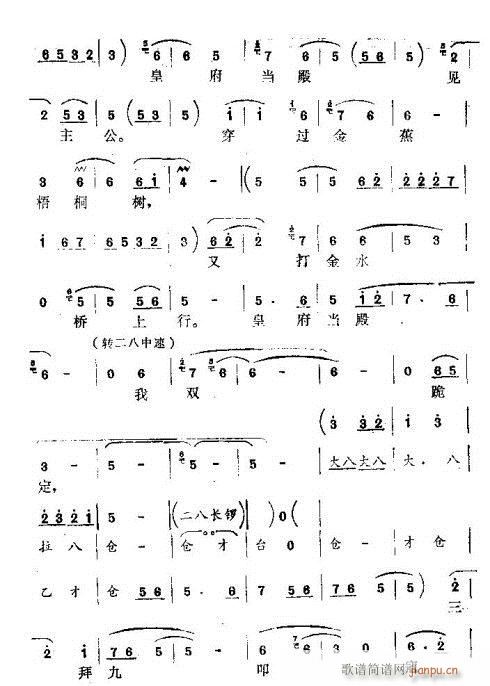 6532 3) 6 6 5 7 6 5 (65 6 5) 2
皇 府 当 殿 见
2 53 5 (53 5) i i 6 7 6 6
主 公。 穿 过 金 蕉
3 6 6 6i 4 - (5 5 5 62 2227
梧 桐 树,
i 67 6532 3) 62 2 7 6 6 5 3
又 打 金 水
0 5 5 56 5 - 6 5 i2 7 · 6
桥 上 行。 皇 府 当 殿
(转二八中速)
6 - 0 6 7 6 6 - 0 65
我 双 跪
(3 32 i 3
3 - 5 - 5 - 5 - 大八大八 大 · 八
定,
2321 5 - (二八长锣) 0(
拉八 仓 - 仓 才 台 0 仓 - 才 仓
乙 才 仓 56 5 · 6 7 56 765 5) 2
三
2 i 76 5 5 3 0 6 · 2
拜 九 叩
歌谱简谱网
jianpu.cn